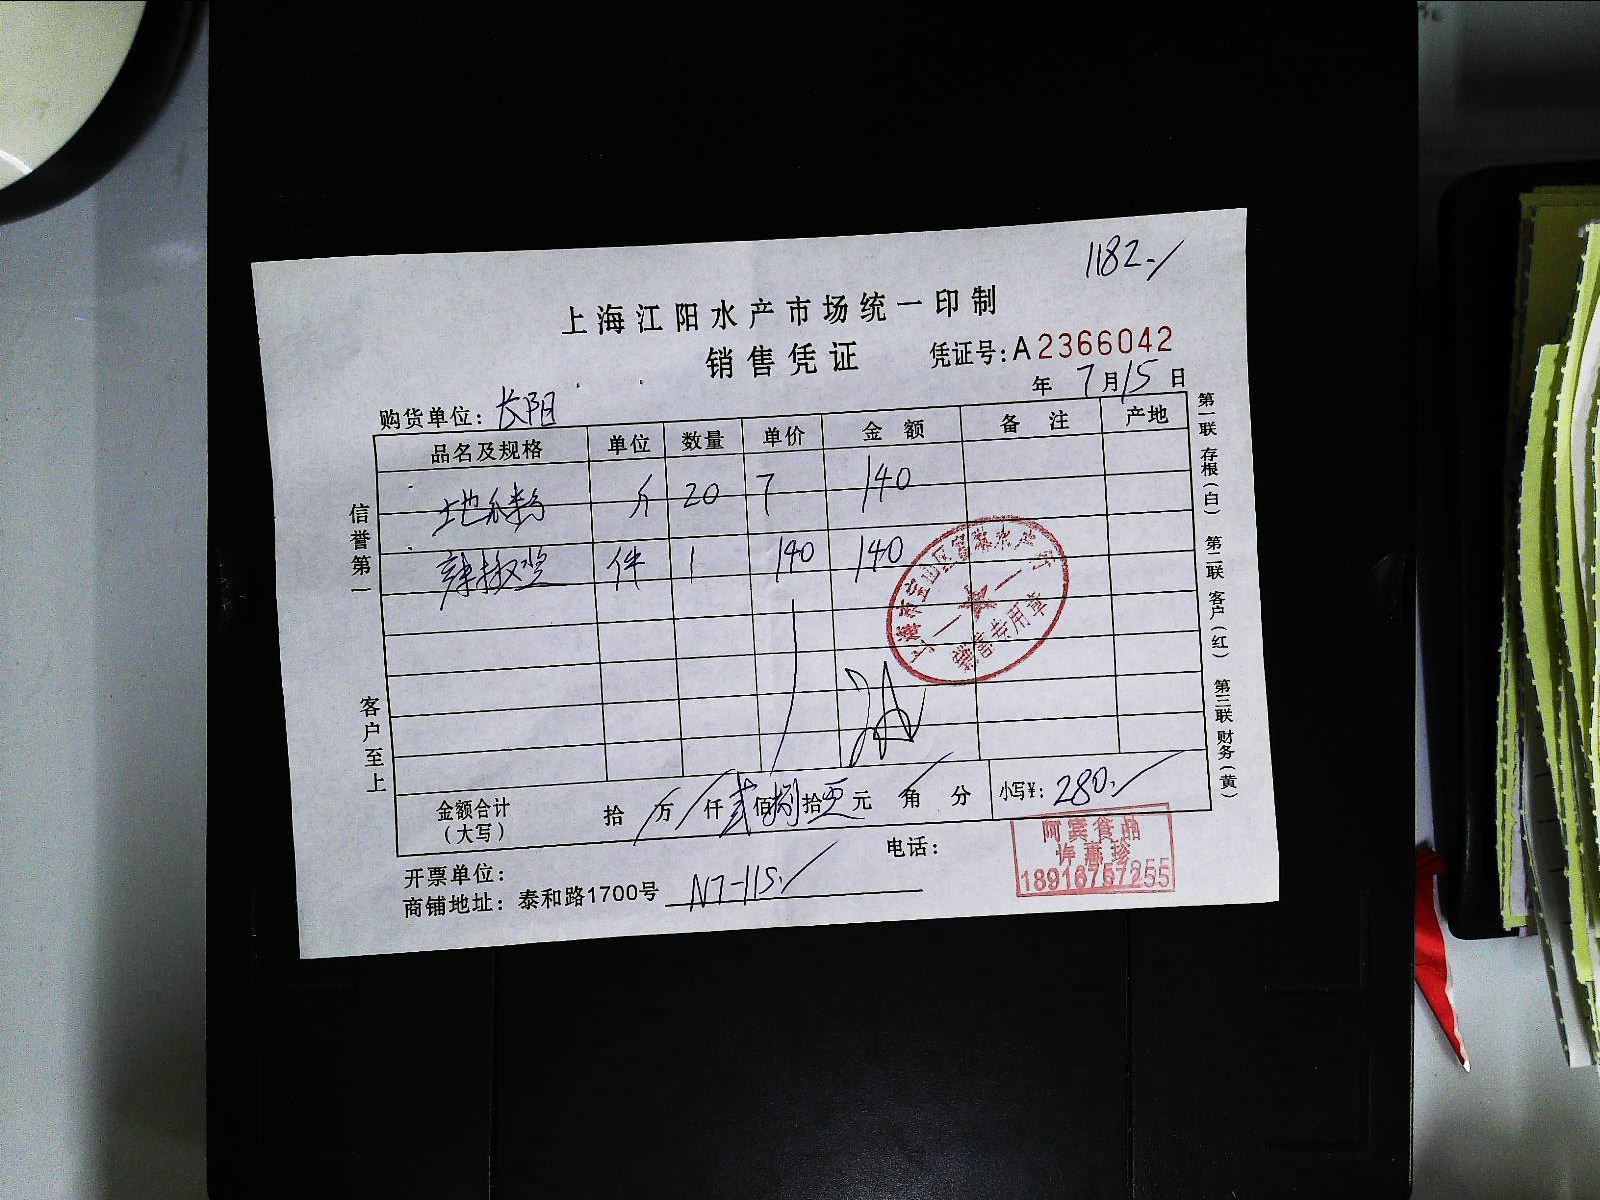 1182.-/
上海江阳水产市场统一印制
销售凭证
凭证号:A2366042
年 7月15日
购货单位: 长阳
品名及规格 单位 数量 单价 金额 备注 产地
土地瓜粉 斤 20 7 140
辣椒 件 1 140 140
金额合计(大写) 拾 万 仟 贰佰捌拾 元 角 分 小写¥: 280.-/
开票单位:
电话:
商铺地址: 泰和路1700号 N7-115.-/
信誉第一
客户至上
第一联 存根(白) 第二联 客户(红) 第三联 财务(黄)
上海市宝山区
销售专用章
阿宾食品
许惠珍
18916757255